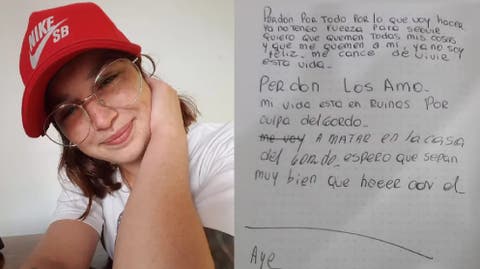 NIKE
SB
PERDON POR TODO POR lo que voy HACER
ya no tengo fuerza para seguir
quiero que quemen todas mis cosas
y que me quemen a mi, ya no soy
feliz. me cance de vivir
esta vida.
PERDON LOS AMO.
mi vida esta en Ruinas POR
culpa del GORDO.
me voy A MATAR en la casa
del Gordo. espero que sepan
muy bien que hacer con el
Aye